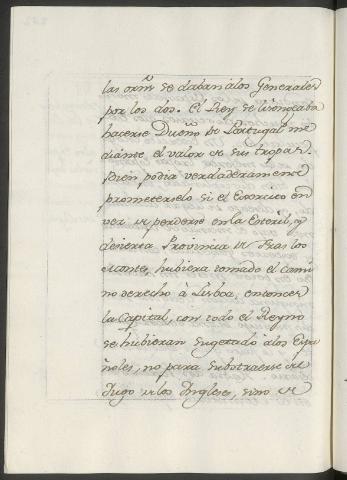 las orñs se daban á los Generales
por los dos. El Rey se lisongeaba
hacerse Dueño de Portugal me
diante el valor de sus tropas.
Bien podia verdaderamente
prometerselo si el Exercito en
vez de perderse en la Esteril, y
decierta Provincia de Tras los
Montes, hubiera tomado el cami
no derecho à Lisboa, entonces
la Capital, con todo el Reyno
se hubieran sugetado à los Espa
ñoles, no para substraerse del
Jugo de los Ingleses, sino de